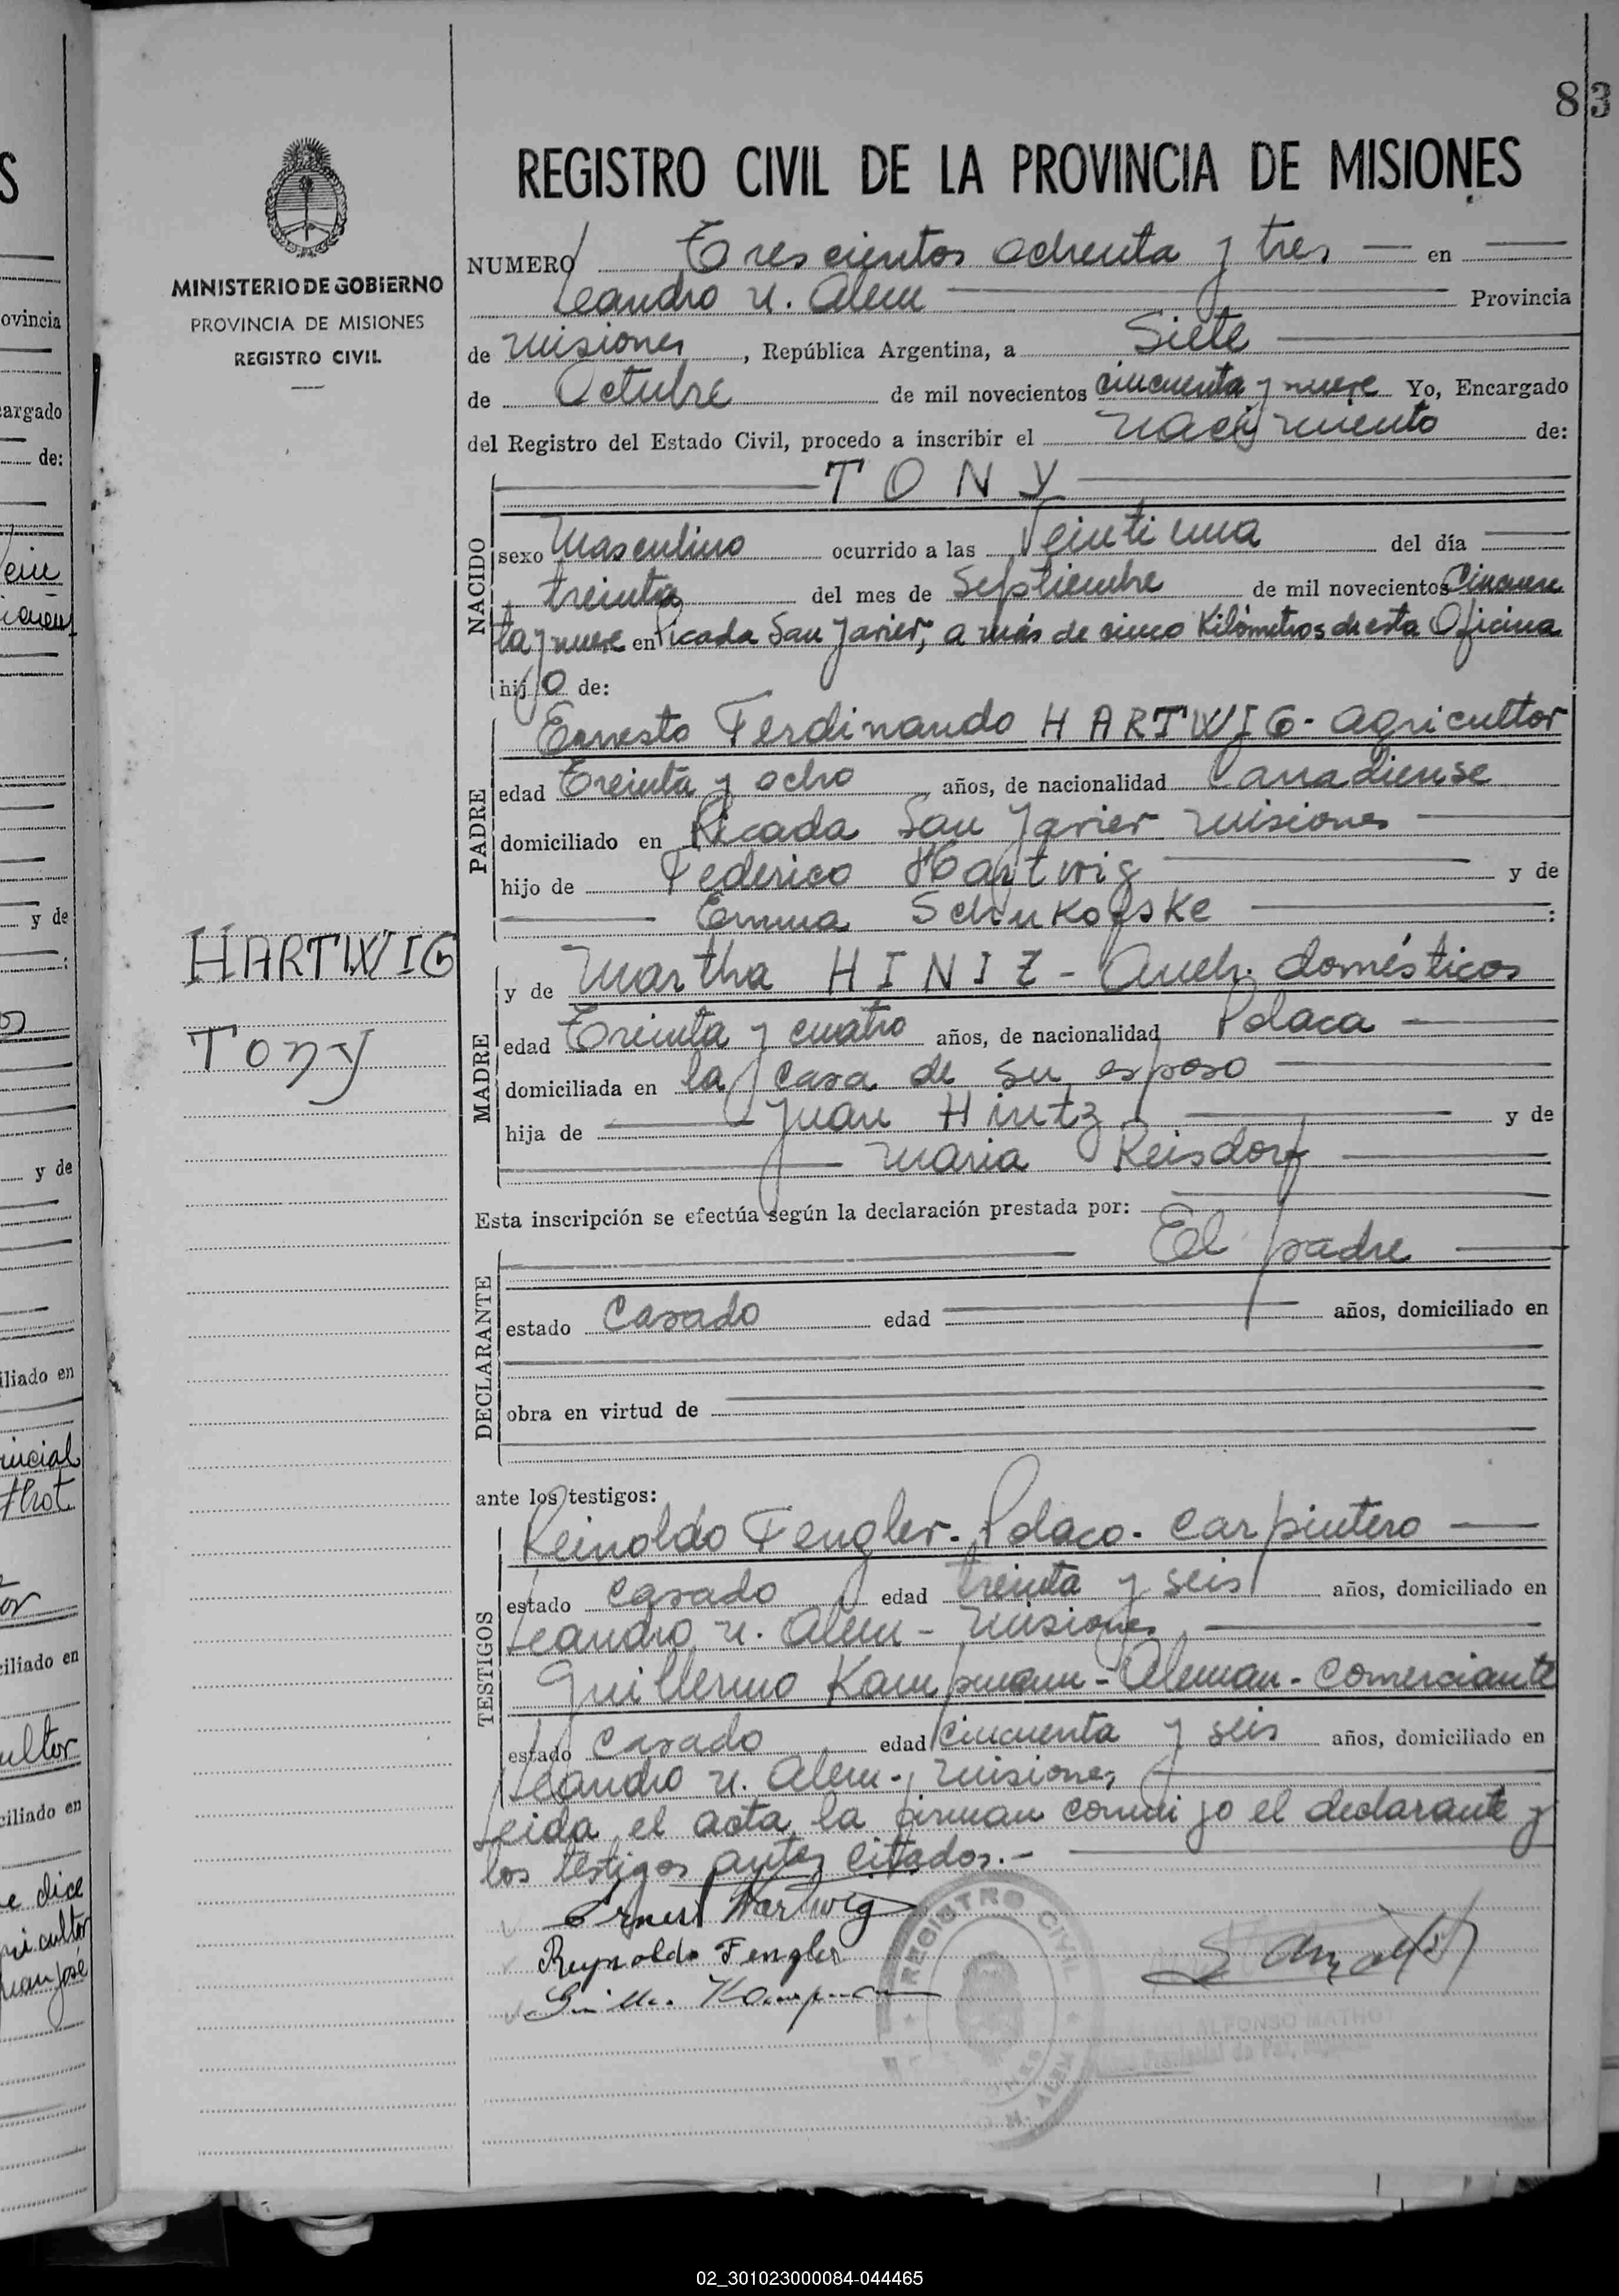 83
REGISTRO CIVIL DE LA PROVINCIA DE MISIONES
MINISTERIO DE GOBIERNO
PROVINCIA DE MISIONES
REGISTRO CIVIL
NUMERO Trescientos ochenta y tres en
Leandro N. Alem Provincia
de Misiones, República Argentina, a Siete
de Octubre de mil novecientos cincuenta y nueve Yo, Encargado
del Registro del Estado Civil, procedo a inscribir el nacimiento de:
TONY
NACIDO
sexo Masculino ocurrido a las Veintiuna del día
treinta del mes de Septiembre de mil novecientos Cincuen
ta y nueve en Picada San Javier, a más de cinco Kilómetros de esta Oficina
hijo de:
PADRE
Ernesto Ferdinando HARTWIG - agricultor
edad Treinta y ocho años, de nacionalidad Canadiense
domiciliado en Picada San Javier Misiones
hijo de Federico Hartwig y de
Emma Schukofske :
HARTWIG
Tony
MADRE
y de Martha HINTZ - Queh. domésticos
edad Treinta y cuatro años, de nacionalidad Polaca
domiciliada en la casa de su esposo
hija de Juan Hintz y de
Maria Reisdorf
Esta inscripción se efectúa según la declaración prestada por:
El padre
DECLARANTE
estado Casado edad años, domiciliado en
obra en virtud de
ante los testigos:
TESTIGOS
Reinoldo Fengler - Polaco - Carpintero
estado casado edad treinta y seis años, domiciliado en
Leandro N. Alem - Misiones
Guillermo Kampmann - Aleman - Comerciante
estado Casado edad cincuenta y seis años, domiciliado en
Leandro N. Alem - Misiones
Leida el acta, la firman conmigo el declarante y
los testigos antes citados.-
Ernest Hartwig
Reynoldo Fengler
REGISTRO CIVIL
ALFONSO MATHOT
N. ALEM
y de
Provincia
02_301023000084-044465